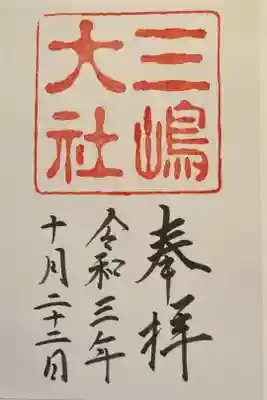 三嶋
大社
奉拝
令和三年
十月二十二日